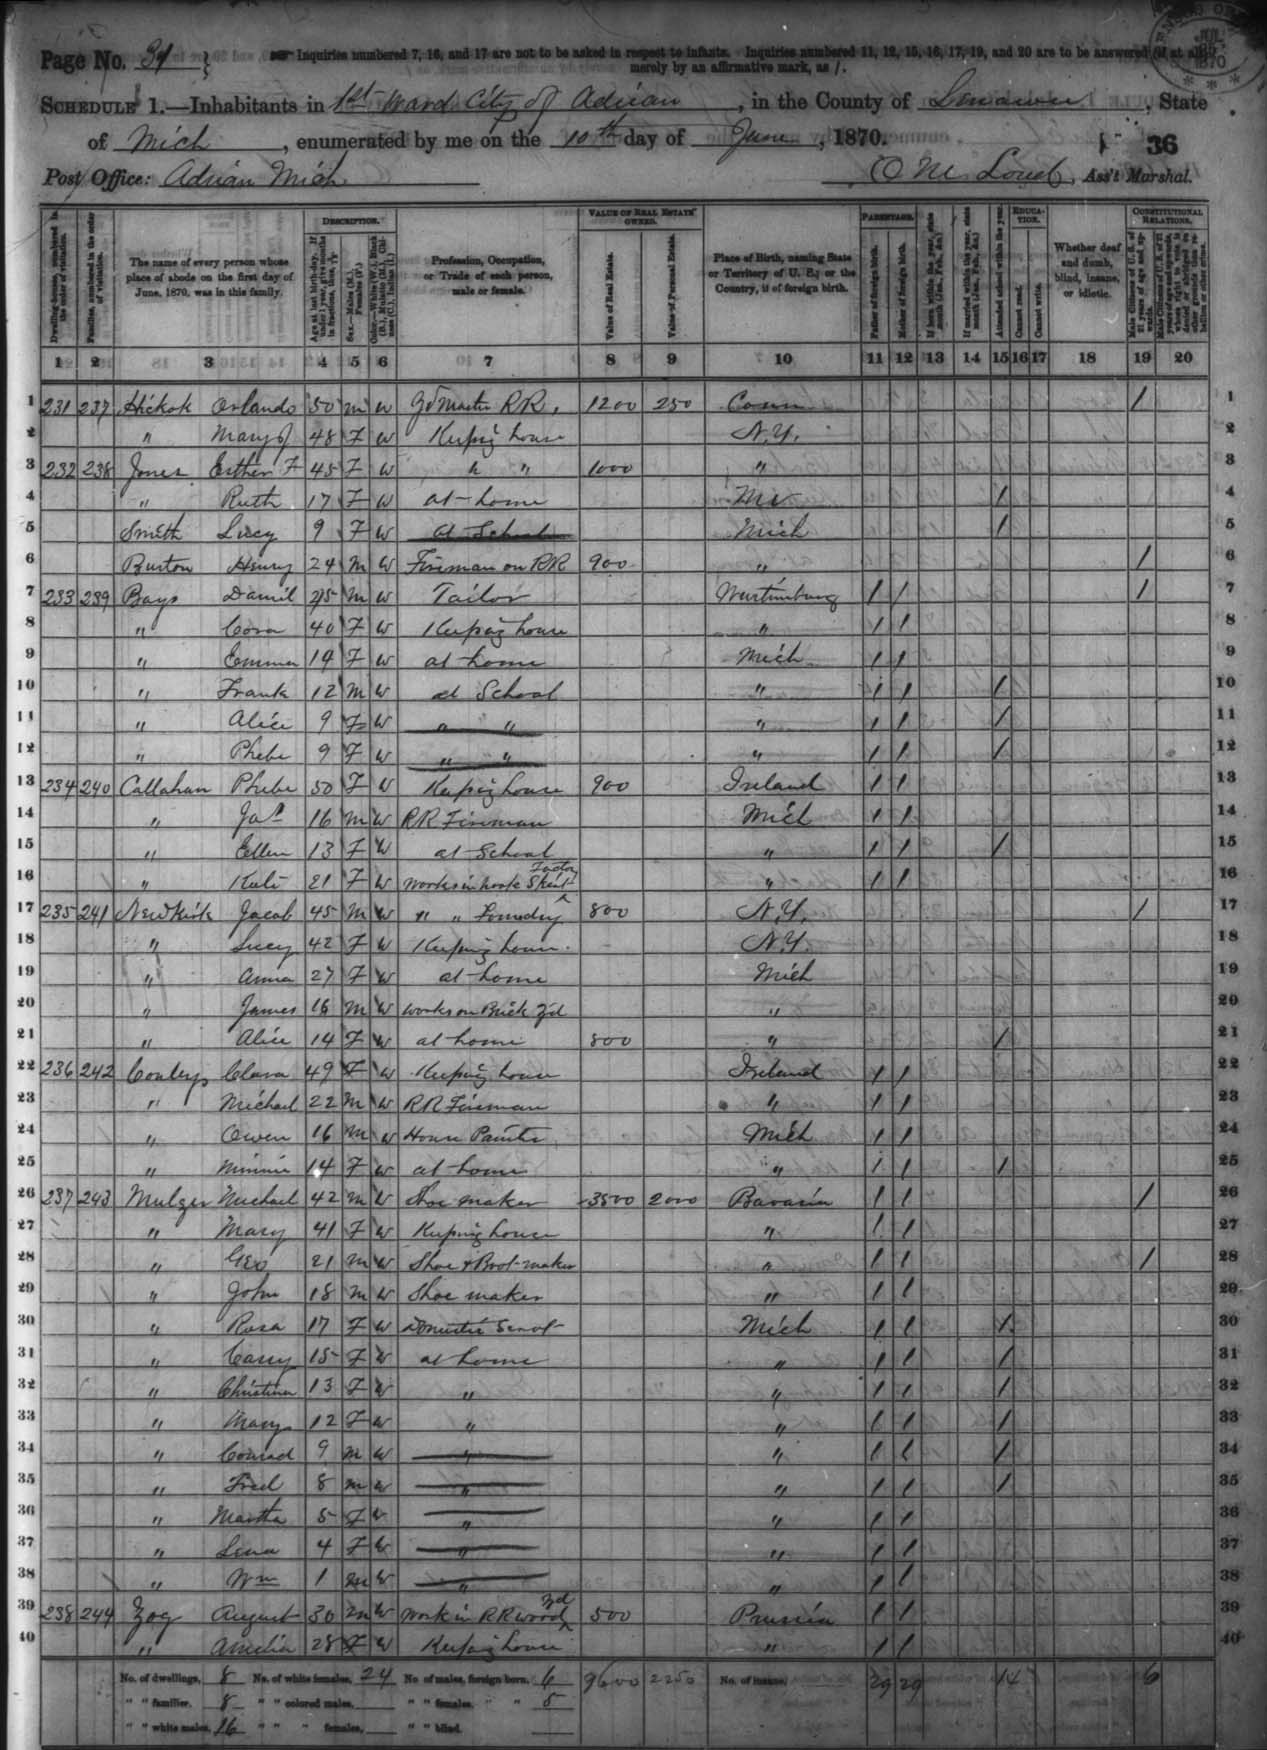 Page No. 31 Inquiries numbered 7, 16, and 17 are not to be asked in respect to infants. Inquiries numbered 11, 12, 15, 16, 17, 19, and 20 are to be answered (if at all)
merely by an affirmative mark, as /.
SCHEDULE 1.—Inhabitants in 1st Ward City of Adrian, in the County of Lenawee, State
of Mich, enumerated by me on the 10th day of June, 1870. 36
Post Office: Adrian Mich Ass't Marshal.
DESCRIPTION. VALUE OF REAL ESTATE OWNED. PARENTAGE. EDUCATION. CONSTITUTIONAL RELATIONS.
Dwelling-houses, numbered in the order of visitation. Families, numbered in the order of visitation. The name of every person whose place of abode on the first day of June, 1870, was in this family. Profession, Occupation, or Trade of each person, male or female. Value of Real Estate. Value of Personal Estate. Place of Birth, naming State or Territory of U. S.; or the Country, if of foreign birth. Father of foreign birth. Mother of foreign birth. Attended school within the year. Cannot read. Cannot write. Whether deaf and dumb, blind, insane, or idiotic.
1 2 3 4 5 6 7 8 9 10 11 12 13 14 15 16 17 18 19 20
1 231 237 Hickok Orlando 50 M W Yd Master RR. 1200 250 Conn / 1
2 " Mary J 48 F W Keeping house N.Y. 2
3 232 238 Jones Esther F 45 F W " " 1000 " 3
4 " Ruth 17 F W at home / 4
5 Smith Lucy 9 F W at School Mich / 5
6 Burton Henry 24 M W Fireman on RR 900 " / 6
7 233 239 Bays Daniel 45 M W Tailor Wurtemburg / / / 7
8 " Cora 40 F W Keeping house " / / 8
9 " Emma 19 F W at home Mich / / 9
10 " Frank 12 M W at School " / / / 10
11 " Alice 9 F W " " " / / / 11
12 " Phebe 9 F W " " " / / / 12
13 234 240 Callahan Phebe 50 F W Keeping house 900 Ireland / / 13
14 " Jas 16 M W RR Fireman Mich / / 14
15 " Ellen 13 F W at School " / / / 15
16 " Kate 21 F W works in hook Skirt Factory " / / 16
17 235 241 Newkirk Jacob 45 M W " " Foundry 800 N.Y. / 17
18 " Lucy 42 F W Keeping house N.Y. 18
19 " Anna 27 F W at home Mich 19
20 " James 16 M W works on Brick Yd " 20
21 " Alice 14 F W at home 800 " / 21
22 236 242 Conleys Clara 49 F W Keeping house Ireland / / 22
23 " Michael 22 M W RR Fireman " / / 23
24 " Owen 16 M W House Painter Mich / / 24
25 " Minnie 14 F W at home " / / / 25
26 237 243 Mulzer Michael 42 M W Shoe maker 3500 2000 Bavaria / / / 26
27 " Mary 41 F W Keeping house " / / 27
28 " Geo 21 M W Shoe & Boot maker " / / / 28
29 " John 18 M W Shoe maker " / / 29
30 " Rosa 17 F W Domestic Servt Mich / / / 30
31 " Carry 15 F W at home " / / / 31
32 " Christina 13 F W " " / / / 32
33 " Mary 12 F W " " / / / 33
34 " Conrad 9 M W " " / / / 34
35 " Fred 8 M W " " / / / 35
36 " Martha 5 F W " " / / 36
37 " Lena 4 F W " " / / 37
38 " Wm 1 M W " " / / 38
39 238 244 Zog August 30 M W work in RR wood Yd 500 Prussia / / 39
40 " Amelia 28 F W Keeping house " / / 40
No. of dwellings, 8 No. of white females, 24 No of males, foreign born, 6 9600 2250 No. of insane, 29 29 14 6
" " families, 8 " " colored males, " " females, " " 5
" " white males, 16 " " " females, " " blind.